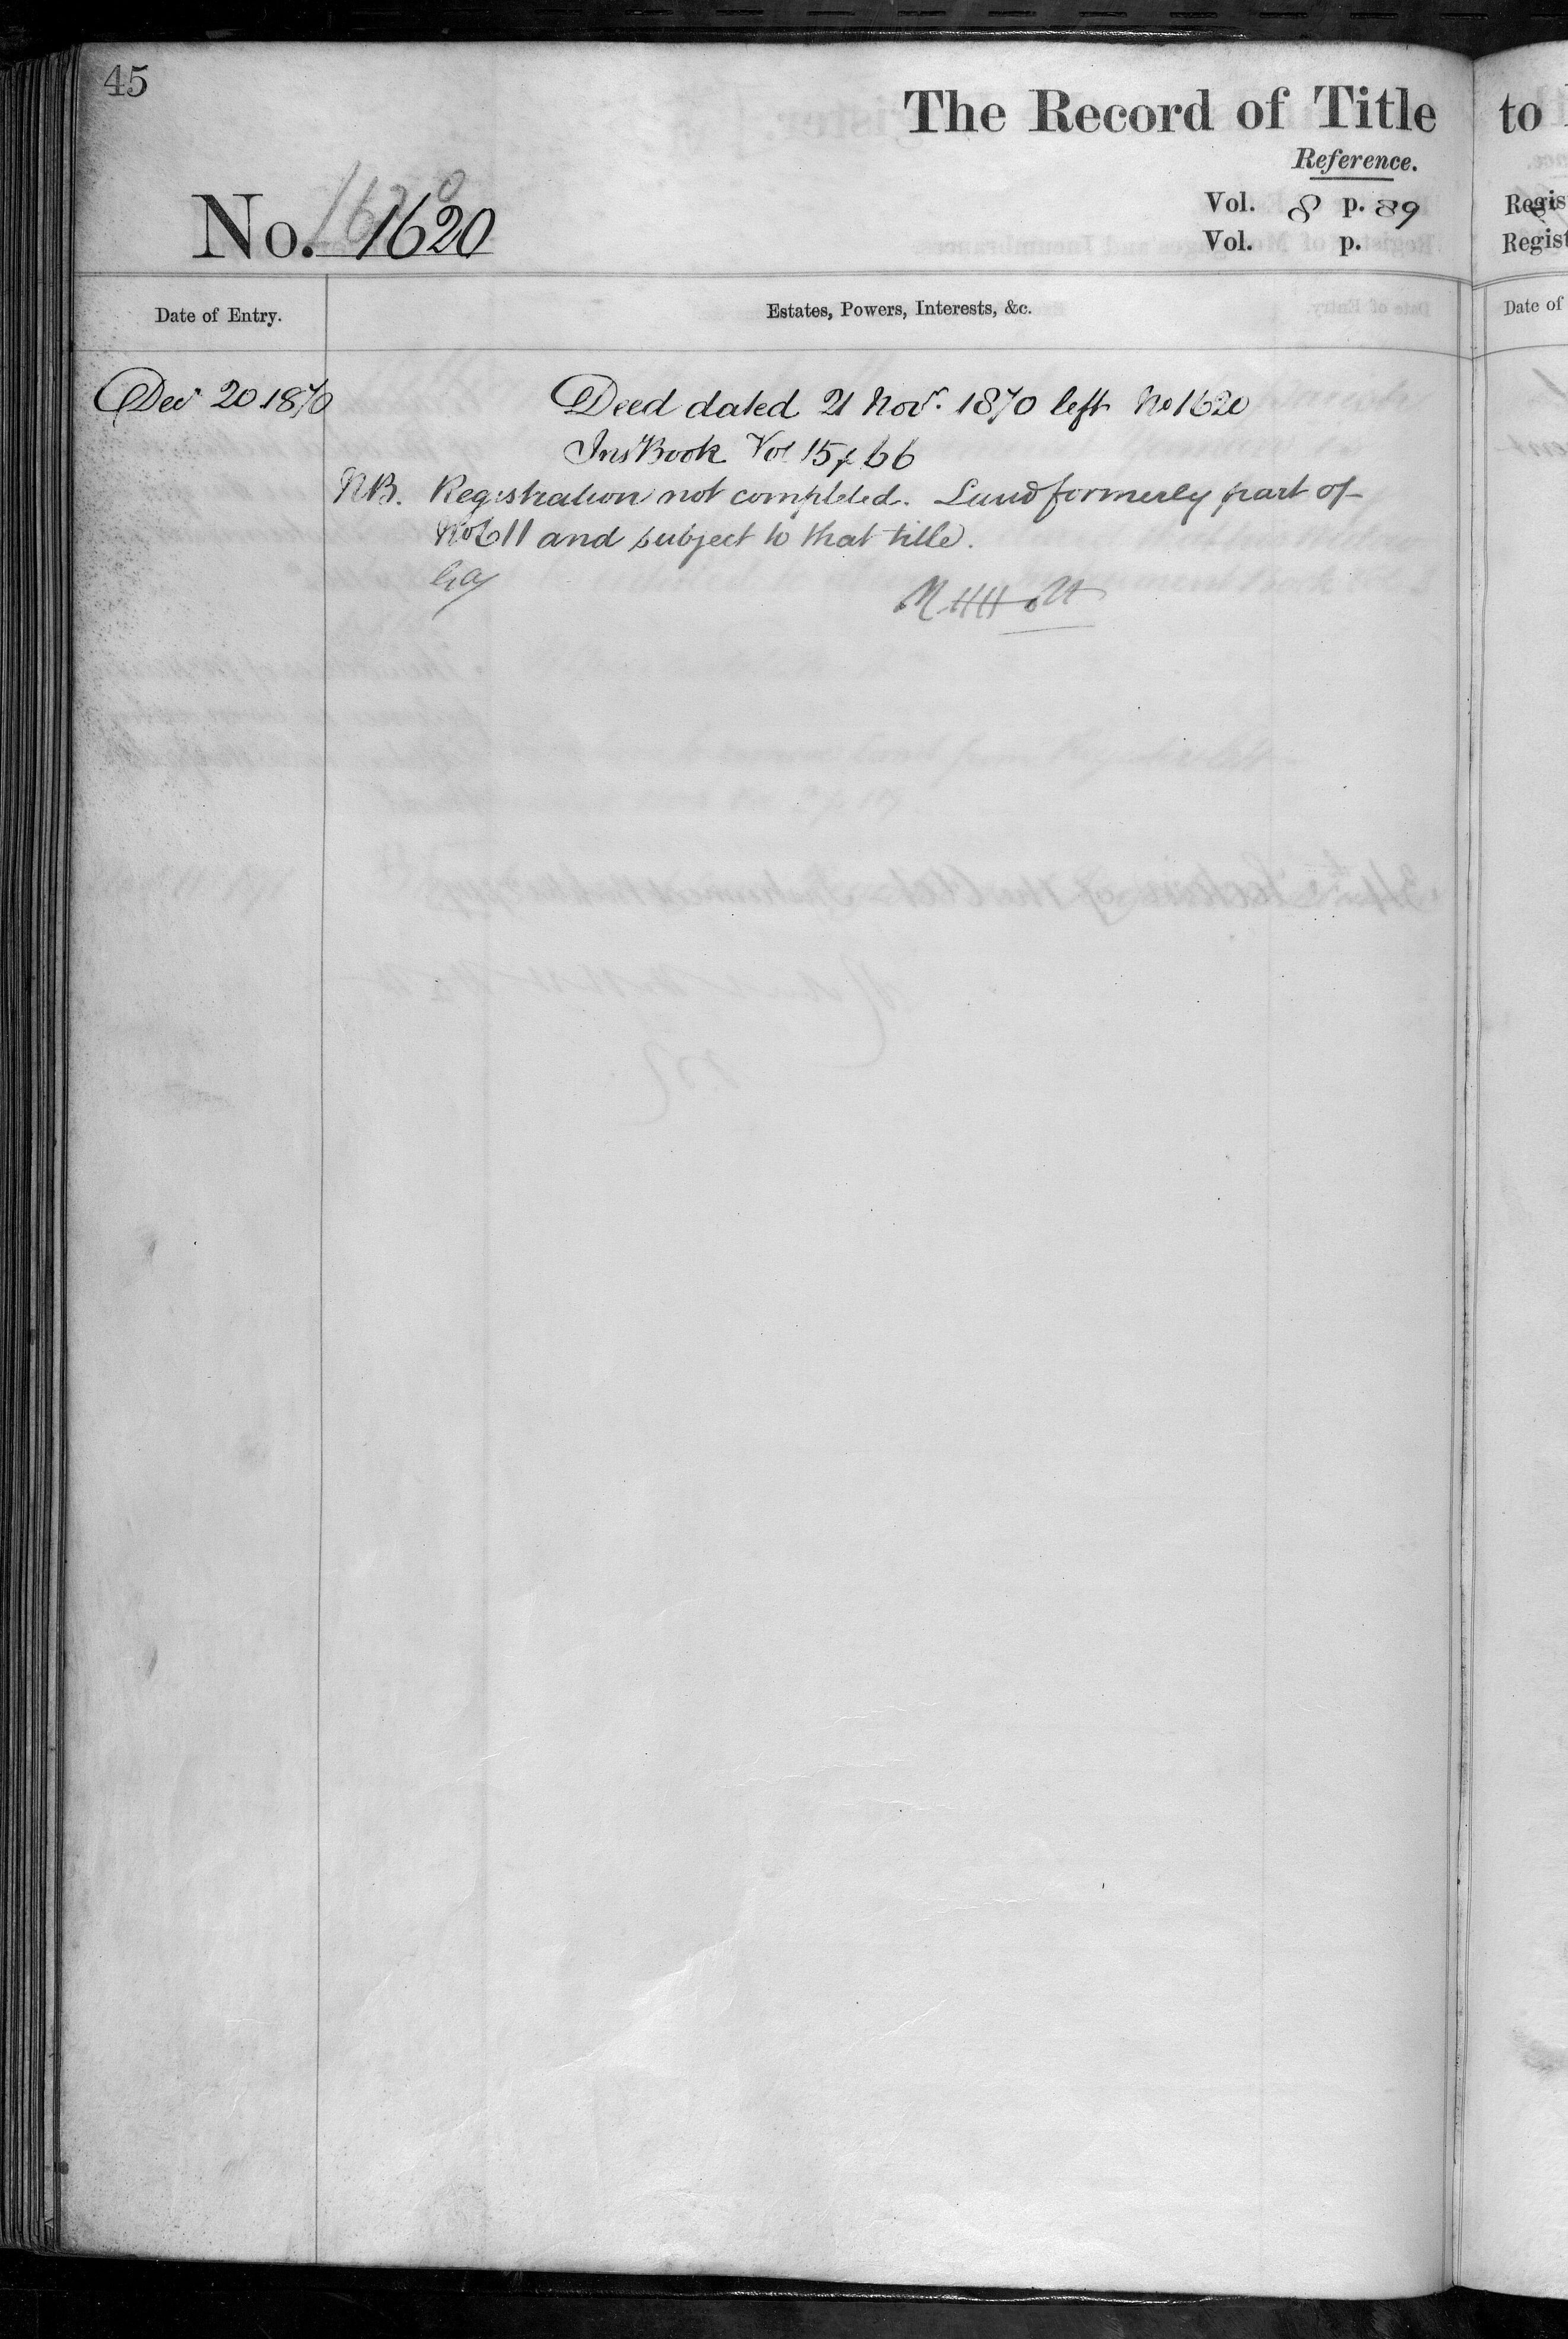 45
The Record of Title
to
Reference.
No. 1620 1620
Vol. 8 p. 89
Vol. p.
Regis
Regist
Date of Entry.
Estates, Powers, Interests, &c.
Date of
Decr 20 1870
Deed dated 21 Novr. 1870 left No 1620
Ins Book Vol 15 p 66
NB. Registration not completed. Land formerly part of
No 611 and subject to that title.